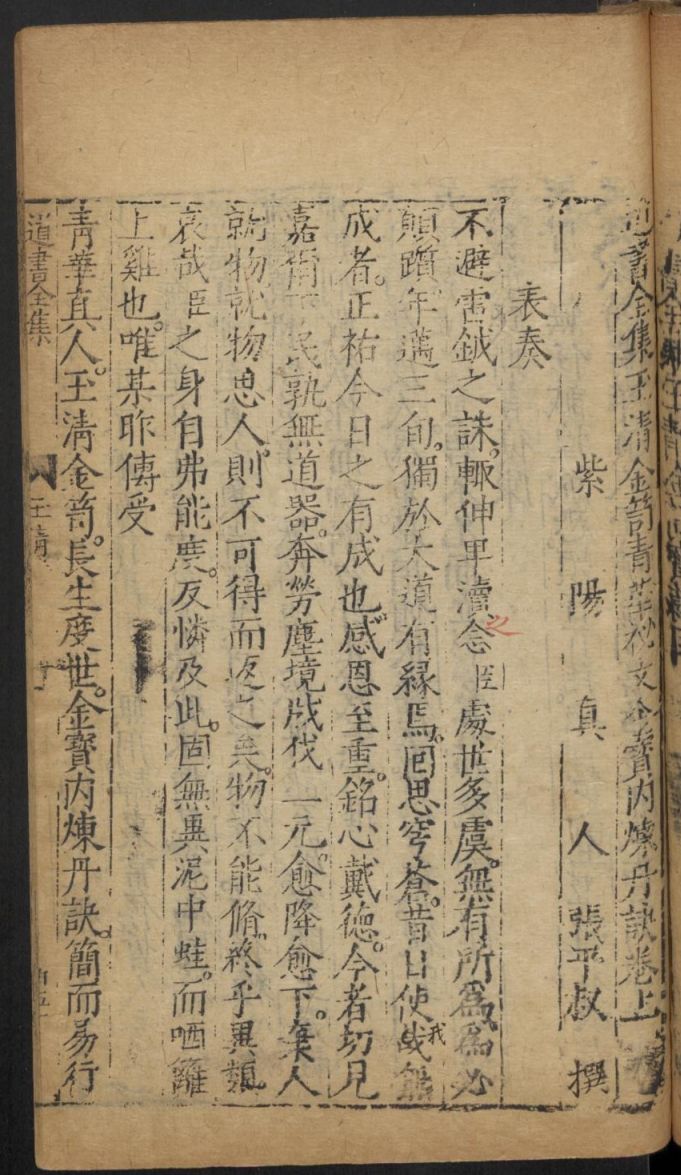 道書全集玉清金笥青華秘文金寶內煉丹訣卷上
紫陽真人張平叔撰
表奏
不避雷鉞之誅輙伸卑瀆念臣處世多虞無有所爲爲必
顛躓年邁三旬獨於大道有緣焉回思穹蒼昔日使我無
我
之
成者正祐今日之有成也感恩至重銘心戴德今者切見
嘉爾下民孰無道器奔勞塵境戕伐一元愈降愈下棄人
就物就物忽人則不可得而返之矣物不能脩終乎異類
哀哉臣之身自弗能度反憐及此固無異泥中蛙而哂籬
上雞也唯某昨傳受
青華真人玉清金笥長生度世金寶內煉丹訣簡而易行
道書全集
玉清